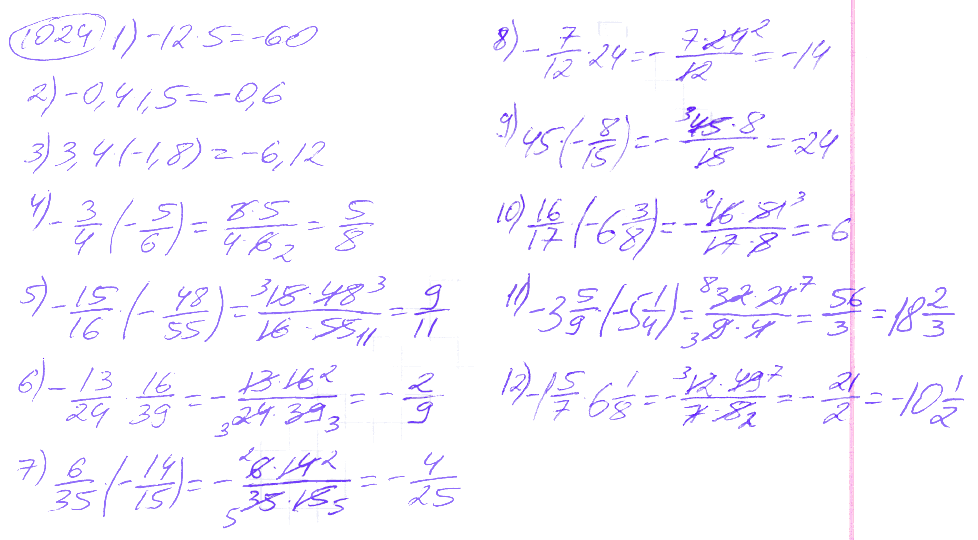 1024 1) -12·5=-60
2) -0,4 1,5=-0,6
3) 3,4 (-1,8) = -6,12
4) -3/4 (-5/6) = 3·5/4·6 2 = 5/8
5) -15/16 · (-48/55) = 3 15·48 3/16·55 11 = 9/11
6) -13/24 · 16/39 = -13·16 2/3 24·39 3 = -2/9
7) 6/35 · (-14/15) = -2 6·14 2/5 35·15 5 = -4/25
8) -7/12 · 24 = -7·24 2/12 = -14
9) 45·(-8/15) = -3 45·8/15 = -24
10) 16/17 · (-6 3/8) = -2 16·51 3/17·8 = -6
11) -3 5/9 · (-5 1/4) = 8 32·21 7/3 9·4 = 56/3 = 18 2/3
12) -1 5/7 · 6 1/8 = -3 12·49 7/7·8 2 = -21/2 = -10 1/2